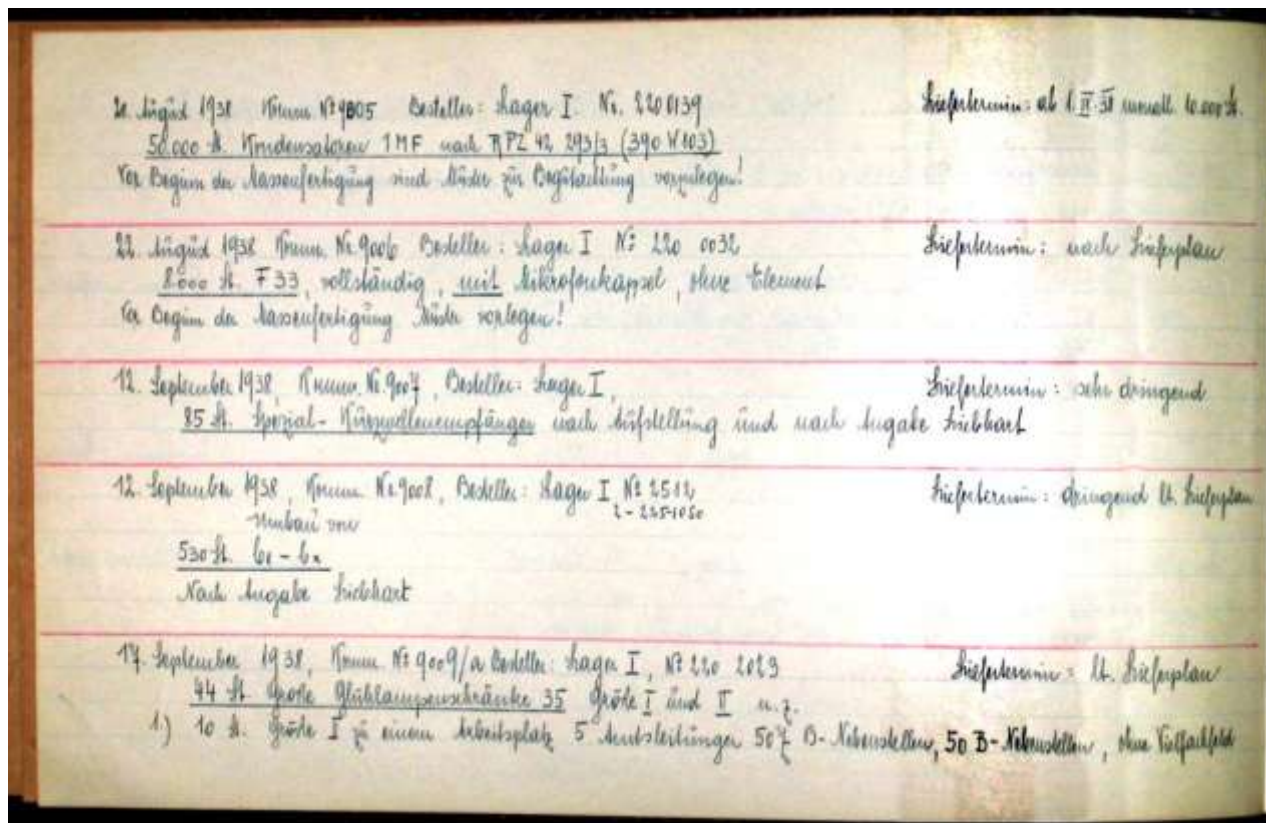 20. August 1938 Komm. № 9005 Besteller: Lager I. No. 2200139 Liefertermin: ab 1.II.38 monatl. 10.000 St.
50.000 St. Kondensatoren 1MF nach RPZ 42 293/3 (390 V103)
Vor Beginn der Massenfertigung sind Muster zür Begütachtüng vorzulegen!
22. Augüst 1938 Komm. No. 9006 Besteller: Lager I № 220 0032 Liefertermin: nach Lieferplan
8000 St. F33, vollständig, mit Mikrofonkapsel, ohne Element
Vor Beginn der Massenfertigung Muster vorlegen!
12. September 1938, Komm. No. 9007, Besteller: Lager I, Liefertermin: sehr dringend
85 St. Spezial-Kürzwellenempfänger nach Aüfstellüng ünd nach Angabe Liebhart
12. September 1938, Komm. No. 9008, Besteller: Lager I № 2512 Liefertermin: dringend lt. Lieferplan
2-225-1050
Umbaü von
530 St.
Nach Angabe Liebhart
17. September 1938, Komm. № 9009/a Besteller: Lager I, № 220 2023 Liefertermin: lt. Lieferplan
44 St. Große Glühlampenschränke 35 Größe I ünd II u.z.
1.) 10 St. Größe I zü einem Arbeitsplatz 5 Amtsleitüngen 50 B-Nebenstellen, 50 B-Nebenstellen, ohne Vielfachfeld